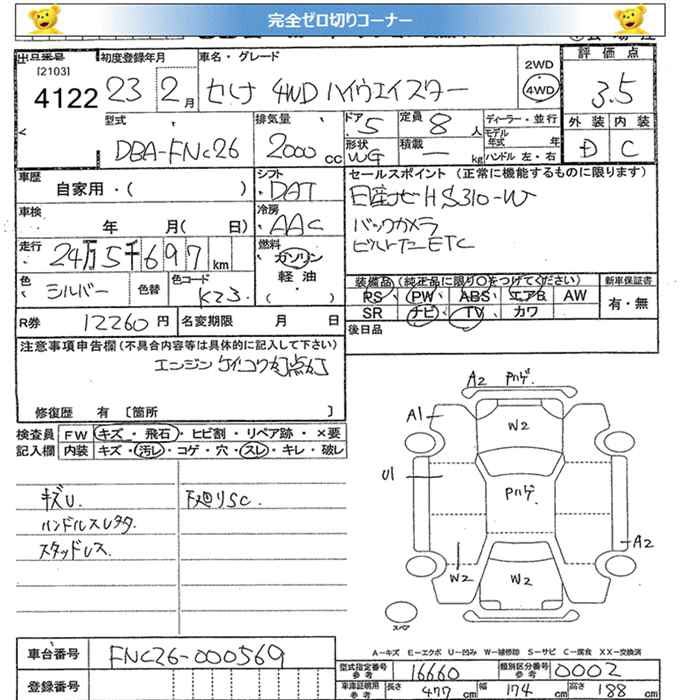 完全ゼロ切りコーナー
出品番号 [2103] 4122
初度登録年月 23 2月
車名・グレード セレナ 4WD ハイウエイスター
2WD 4WD
評価点 3.5
外装 D 内装 C
型式 DBA-FNC26
排気量 2000 cc
ドア 5 定員 8 人
形状 WG 積載 ー kg
ディーラー・並行
モデル年式 年
ハンドル 左・右
車歴 自家用・( )
シフト DAT
車検 年 月( 日)
冷房 AAC
走行 24万5千697 km
燃料 ガソリン 軽油 ( )
色 シルバー 色替 色コード K23
セールスポイント (正常に機能するものに限ります)
日産ナビHS310-W
バックカメラ
ビルトインETC
装備品 (純正品に限り○をつけてください) 新車保証書
PS、PW、ABS、エアB AW 有・無
SR ナビ、TV、カワ
後日品
R券 12260円 名変期限 月 日
注意事項申告欄 (不具合内容等は具体的に記入して下さい)
エンジンケイコク灯点灯
修復歴 有 〔箇所 〕
検査員 FW キズ・飛石・ヒビ割・リペア跡・×要
記入欄 内装 キズ・汚レ・コゲ・穴・スレ・キレ・破レ
キズU. 下廻りSC.
ハンドルスレクタ.
スタッドレス.
A2 Pハゲ.
A1 W2
U1 Pハゲ.
A2
W2 W2
スペア
A-キズ E-エクボ U-凹み W-補修印 S-サビ C-腐食 XX-交換済
車台番号 FNC26-000569
登録番号
型式指定番号 参考 16660 類別区分番号 参考 0002
車庫証明用 参考 長さ 477 cm 幅 174 cm 高さ 188 cm